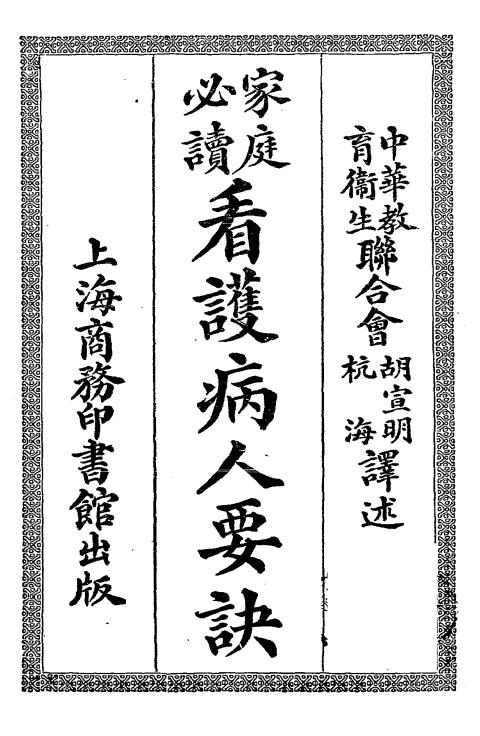 中華教育衞生聯合會 胡宣明 杭海 譯述
家庭必讀 看護病人要訣
上海商務印書館出版